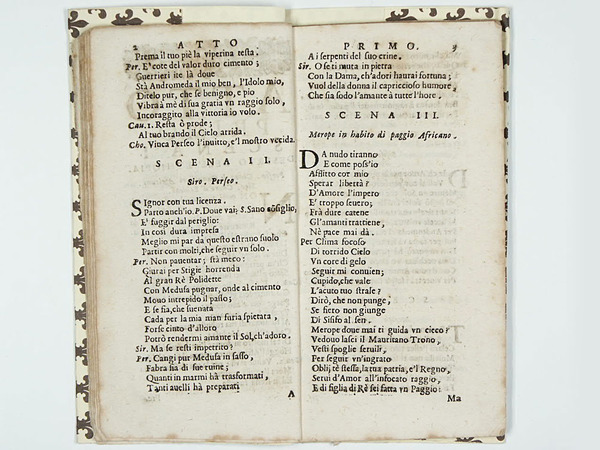 2 ATTO
Prema il tuo piè la viperina testa.
Per. E'cote del valor duto cimento;
Guerrieri ite là doue
Stà Andromeda il mio ben, l'Idolo mio,
Ditelo pur, che se benigno, e pio
Vibra à mè di sua gratia vn raggio solo,
Incoraggito alla vittoria io volo.
Cau. 1. Resta ò prode;
Al tuo brando il Cielo arrida.
Cho. Vinca Perseo l'inuitto, e'l mostro vccida.
SCENA II.
Siro. Perseo.
SIgnor con tua licenza.
Parto anch'io. P. Doue vai; S. Sano cōsiglio,
E' fuggir dal periglio:
In così dura impresa
Meglio mi par da questo estrano suolo
Partir con molti, che seguir vn solo.
Per. Non pauentar; stà meco:
Giurai per Stigie horrenda
Al gran Rè Polidette
Con Medusa pugnar, onde al cimento
Mouo intrepido il passo;
E se fia, che suenata
Cada per la mia man furia spietata,
Forse cinto d'alloro
Potrò rendermi amante il Sol, ch'adoro.
Sir. Ma se resti impetrito?
Per. Cangi pur Medusa in sasso,
Fabra sia di sue ruine;
Quanti in marmi hà trasformati,
Tanti auelli hà preparati
A
PRIMO. 9
A i serpenti del suo crine.
Sir. O se ti muta in pietra
Con la Dama, ch'adori haurai fortuna;
Vuol della donna il capriccioso humore,
Che sia sodo l'amante à tutte l'hore.
SCENA III.
Merope in habito di paggio Africano.
DA nudo tiranno
E come poss'io
Afflitto cor mio
Sperar libertà?
D'Amore l'impero
E' troppo seuero;
Frà dure catene
Gl'amanti trattiene,
Nè pace mai dà.
Per Clima focoso
Di torrido Cielo
Vn core di gelo
Seguir mi conuien;
Cupido, che vale
L'acuto tuo strale?
Dirò, che non punge,
Se fiero non giunge
Di Sisifo al sen.
Merope doue mai ti guida vn cieco?
Vedouo lasci il Mauritano Trono,
Vesti spoglie seruili,
Per seguir vn'ingrato
Oblij tè stessa, la tua patria, e'l Regno,
Serui d'Amor all'infocato raggio,
E di figlia di Rè sei fatta vn Paggio:
Ma